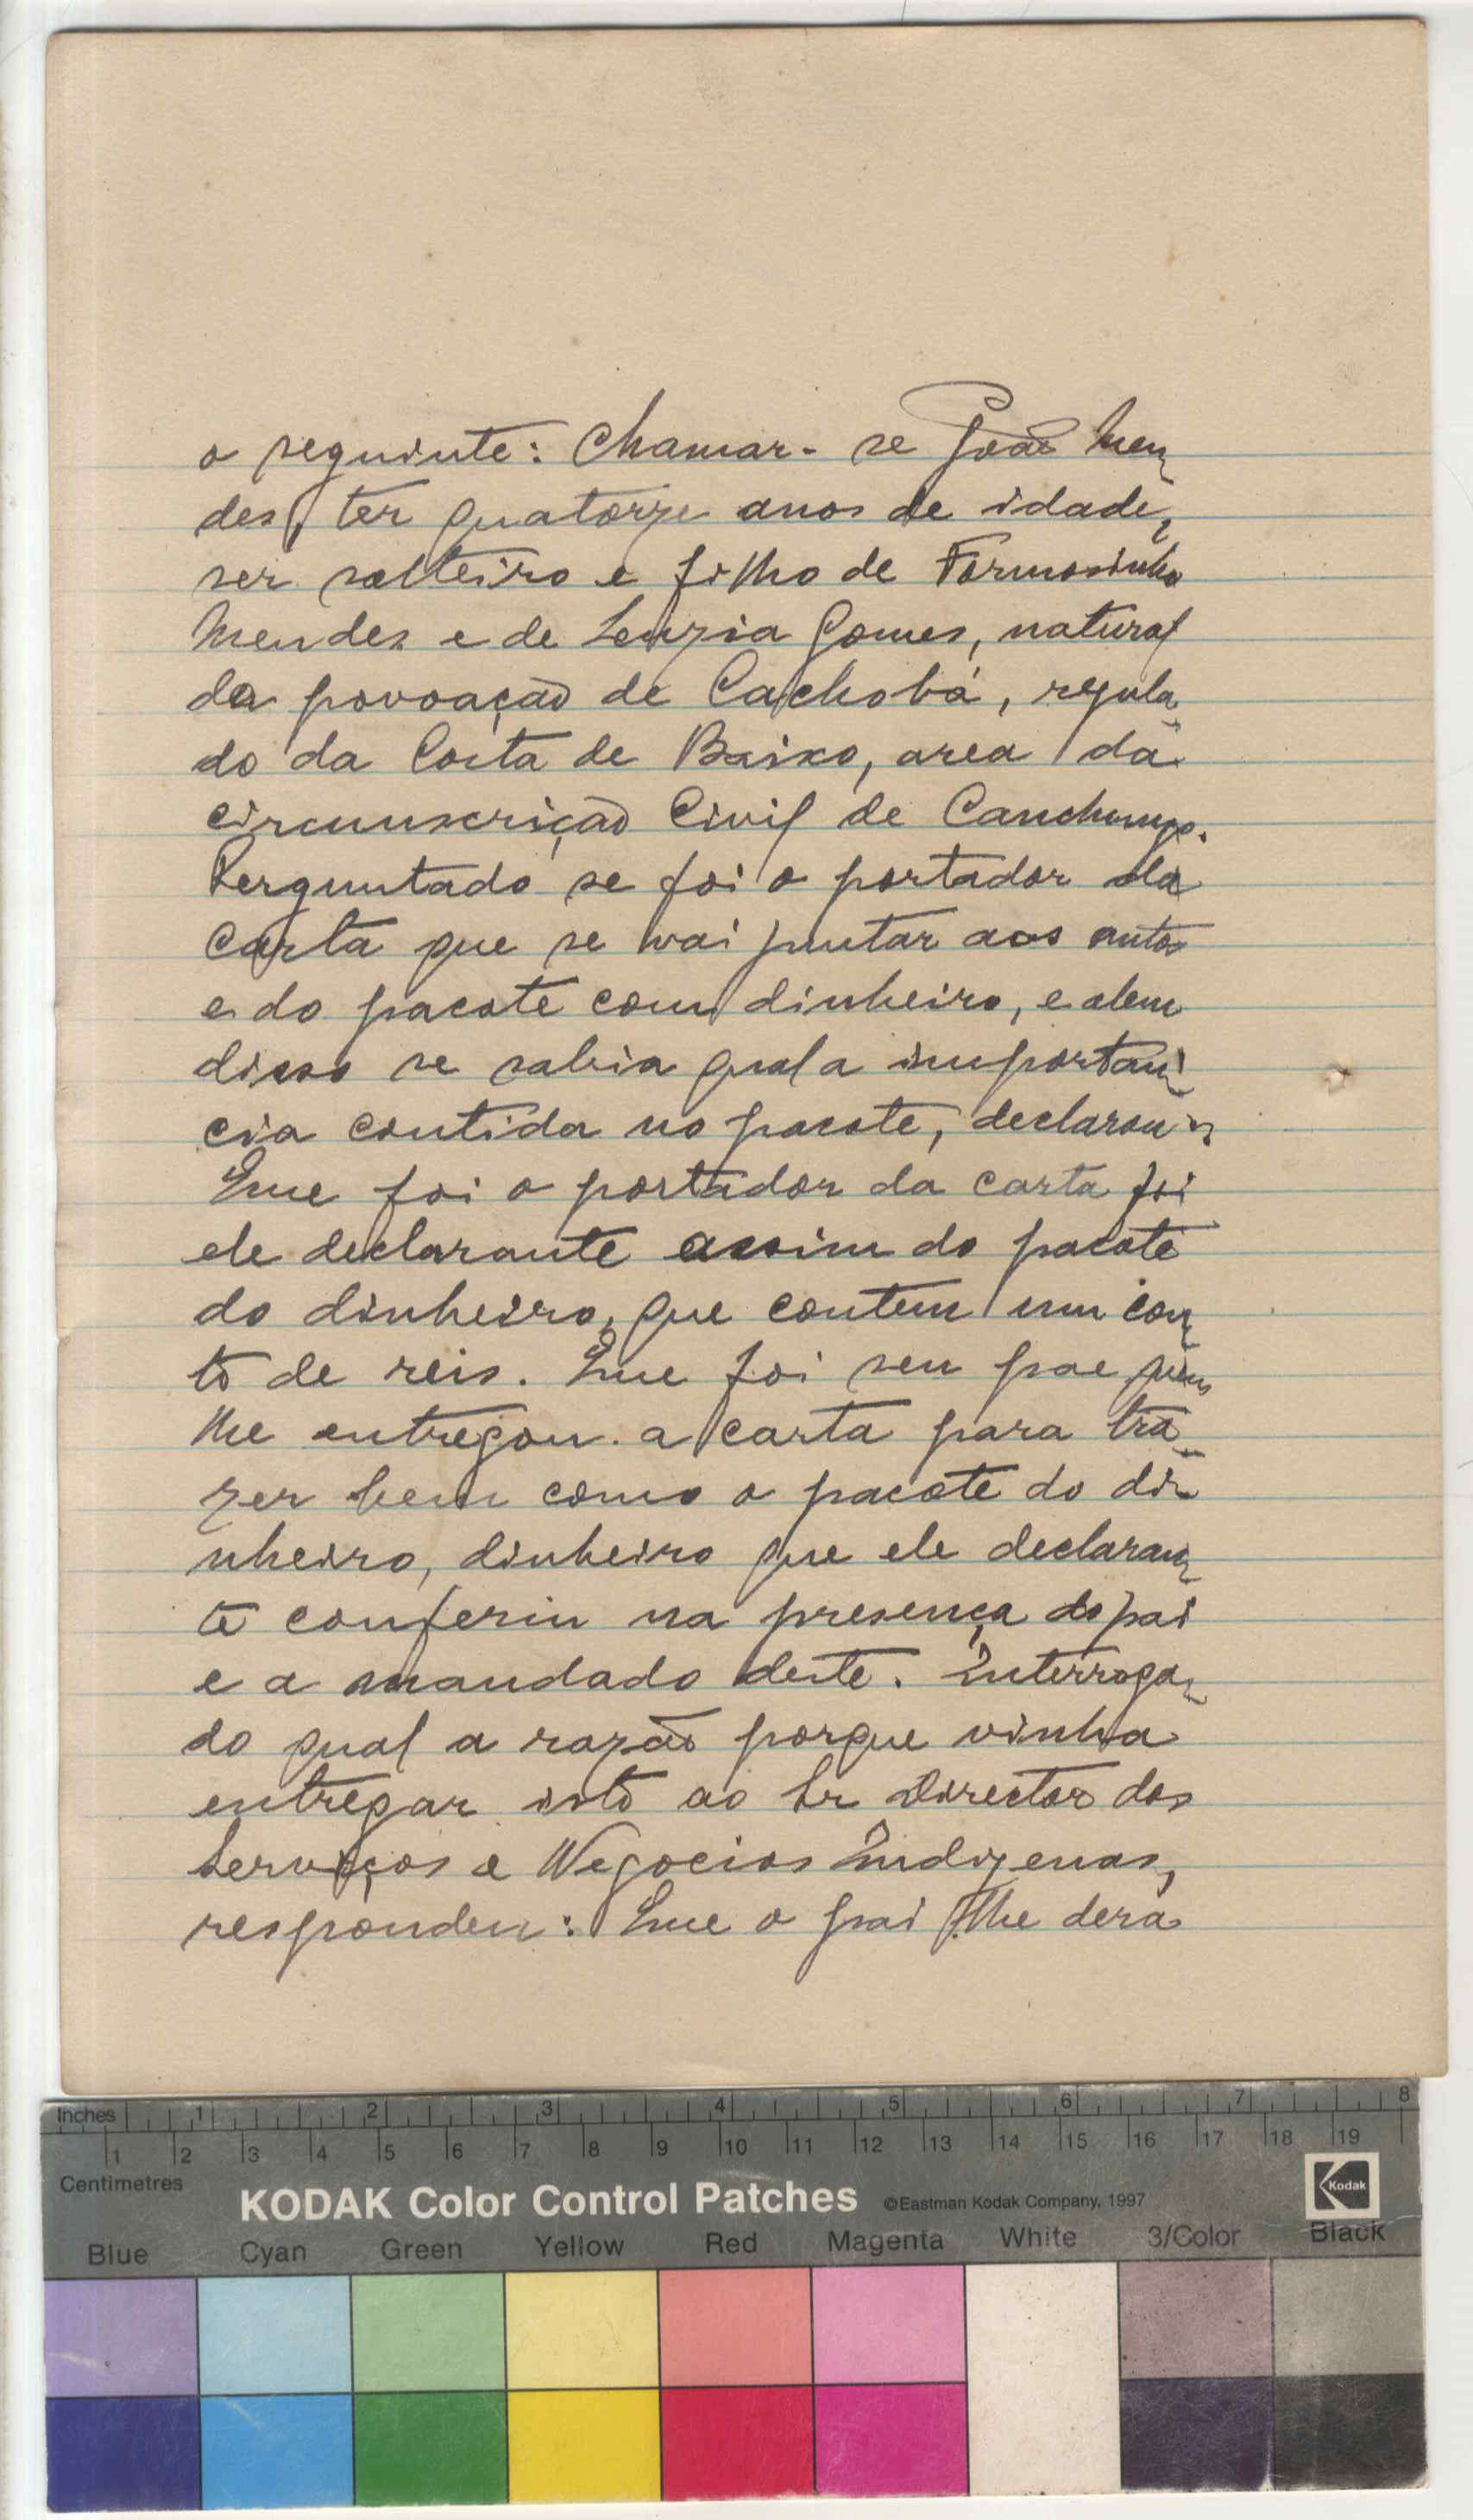 o seguinte: Chamar-se João Men-
des, ter quatorze anos de idade,
ser solteiro e filho de Formosinho
Mendes e de Luzia Gomes, natural
da povoação de Cachobá, regula-
do da Costa de Baixo, area da
circunscrição Civil de Canchungo.
Perguntado se foi o portador da
carta que se vai juntar aos autos
e do pacote com dinheiro, e alem
disso se sabia qual a importan-
cia contida no pacote, declarou:
Que foi o portador da carta foi
ele declarante assim do pacote
do dinheiro, que contem um con-
to de reis. Que foi seu pae quem
lhe entregou a carta para tra-
zer bem como o pacote do di-
nheiro, dinheiro que ele declaran-
te conferiu na presença do pai
e a mandado deste. Interroga-
do qual a razão porque vinha
entregar isto ao Sr Director dos
Serviços e Negocios Indigenas,
respondeu: Que o pai lhe dera
Inches 1 2 3 4 5 6 7 8
1 2 3 4 5 6 7 8 9 10 11 12 13 14 15 16 17 18 19
Centimetres
KODAK Color Control Patches ©Eastman Kodak Company, 1997 Kodak
Blue Cyan Green Yellow Red Magenta White 3/Color Black